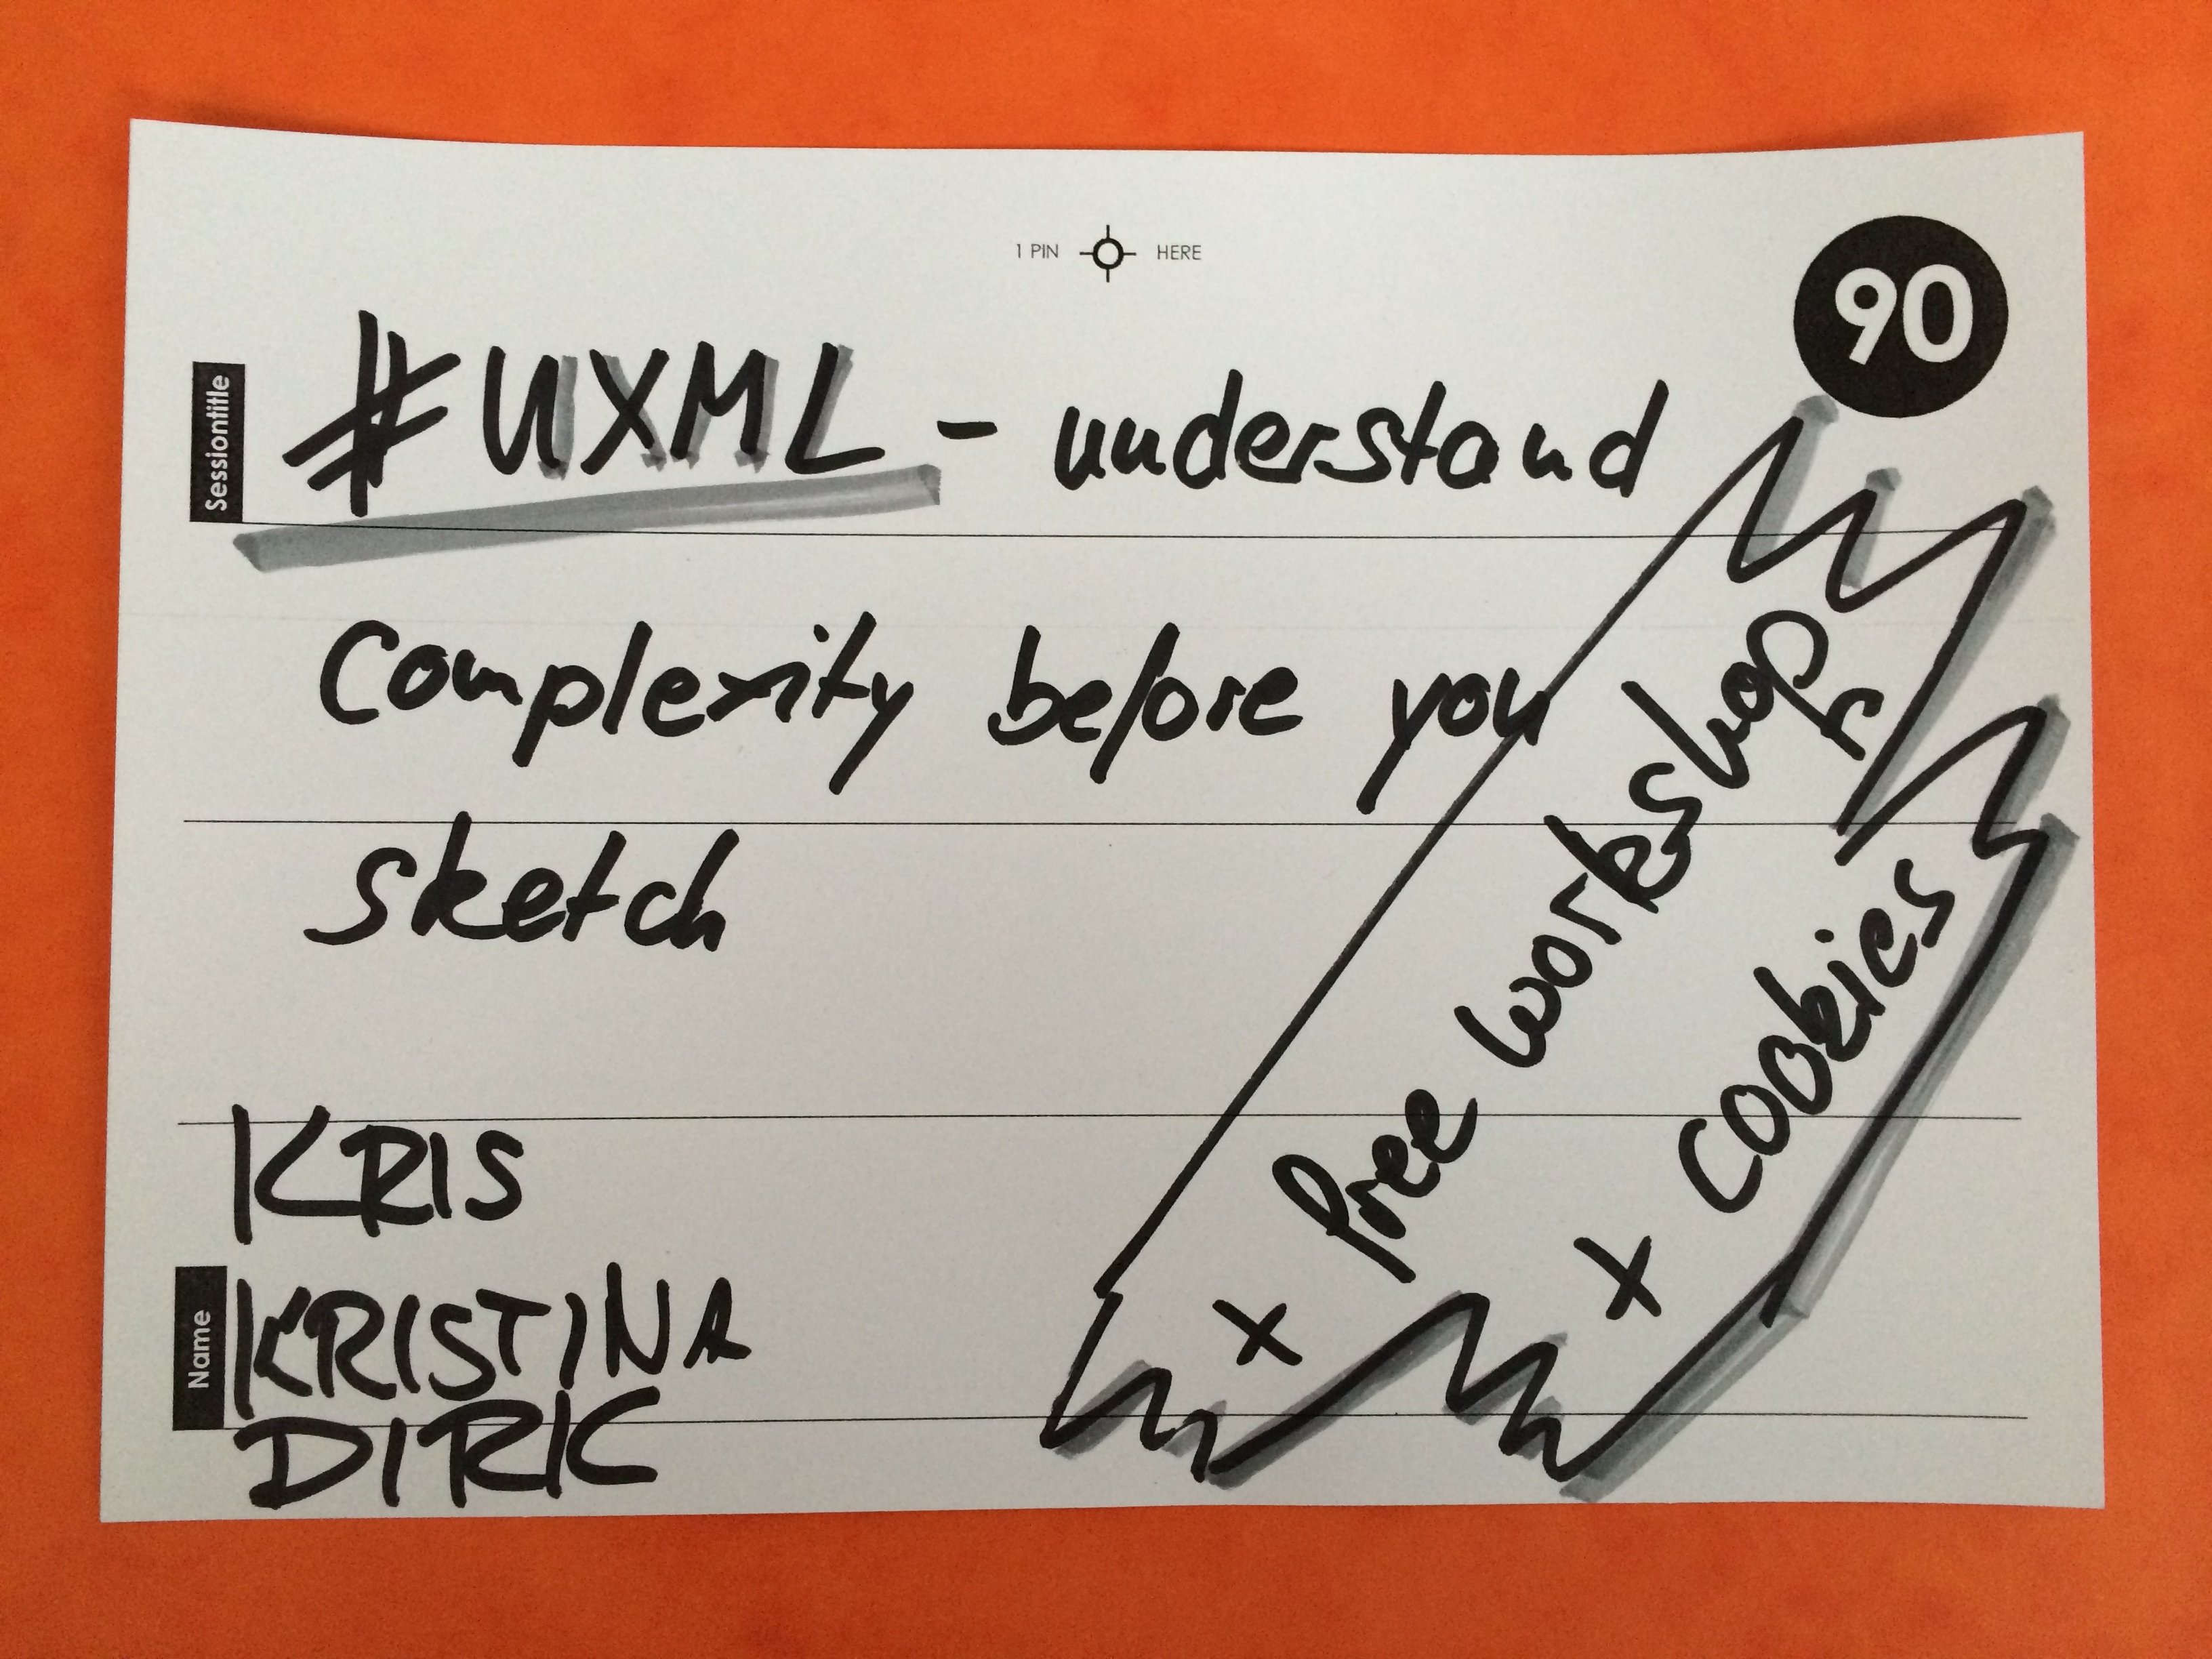 1 PIN HERE
90
Sessiontitle
#UXML - understand
Complexity before you
sketch
x free workshops
x cookies
KRIS
Name
KRISTINA
DIRK